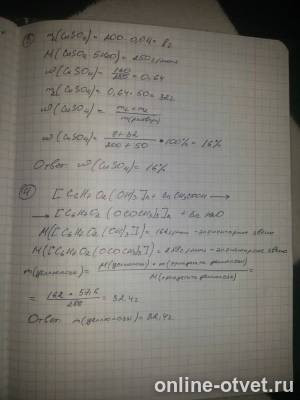 m(CuSO4) = 200 · 0,04 = 8г
M(CuSO4 · 5H2O) = 250 г/моль
w(CuSO4) = 160/250 = 0,64
m2(CuSO4) = 0,64 · 50 = 32г
w(CuSO4) = m1 + m2 / m(раствор)
w(CuSO4) = 8+32 / 200+50 · 100% = 16%
Ответ w(CuSO4) = 16%
[C6H7O2(OH)3]n + 3n CH3COOH →
→ [C6H7O2(OCOCH3)3]n + 3n H2O
M([C6H7O2(OH)3] = 162 г/моль - элементарное звено
M([C6H7O2(OCOCH3)3] = 288 г/моль - элементарное звено
m(целлюлозы) = M(целлюлозы) · m(триацетата целлюлозы) / M(триацетата целлюлозы) =
= 162 · 57,6 / 288 = 32,4г
Ответ m(целлюлозы) = 32,4г
online-otvet.ru